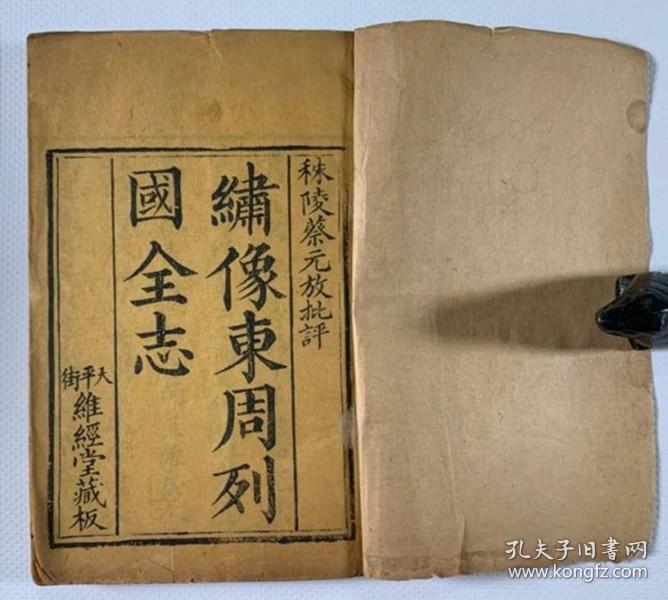 秣陵蔡元放批評
繡像東周列
國全志
天平街
維經堂藏板
孔夫子旧书网
www.kongfz.com